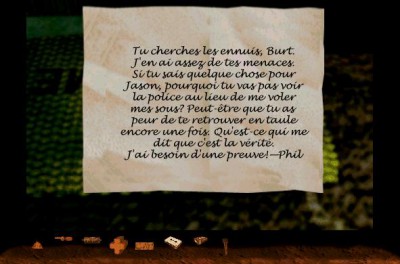 Tu cherches les ennuis, Burt.
J'en ai assez de tes menaces.
Si tu sais quelque chose pour
Jason, pourquoi tu vas pas voir
la police au lieu de me voler
mes sous? Peut-être que tu as
peur de te retrouver en taule
encore une fois. Qu'est-ce qui me
dit que c'est la vérité.
J'ai besoin d'une preuve!—Phil